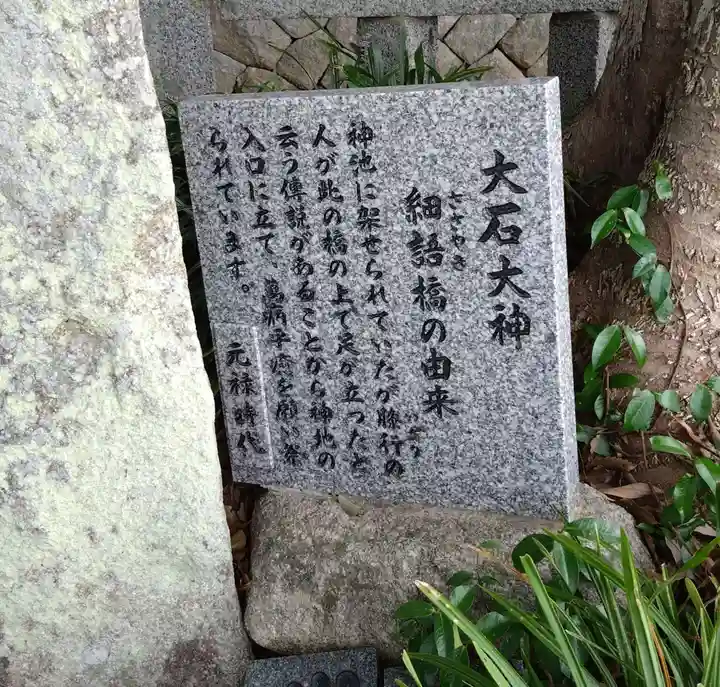 大石大神
ささやき
細語橋の由来
神池に架せられていたが膝行の
いざり
人が此の橋の上で足が立ったと
云う傳説があることから神地の
入口に立て、萬病平癒を願い祭
られています。
元禄時代